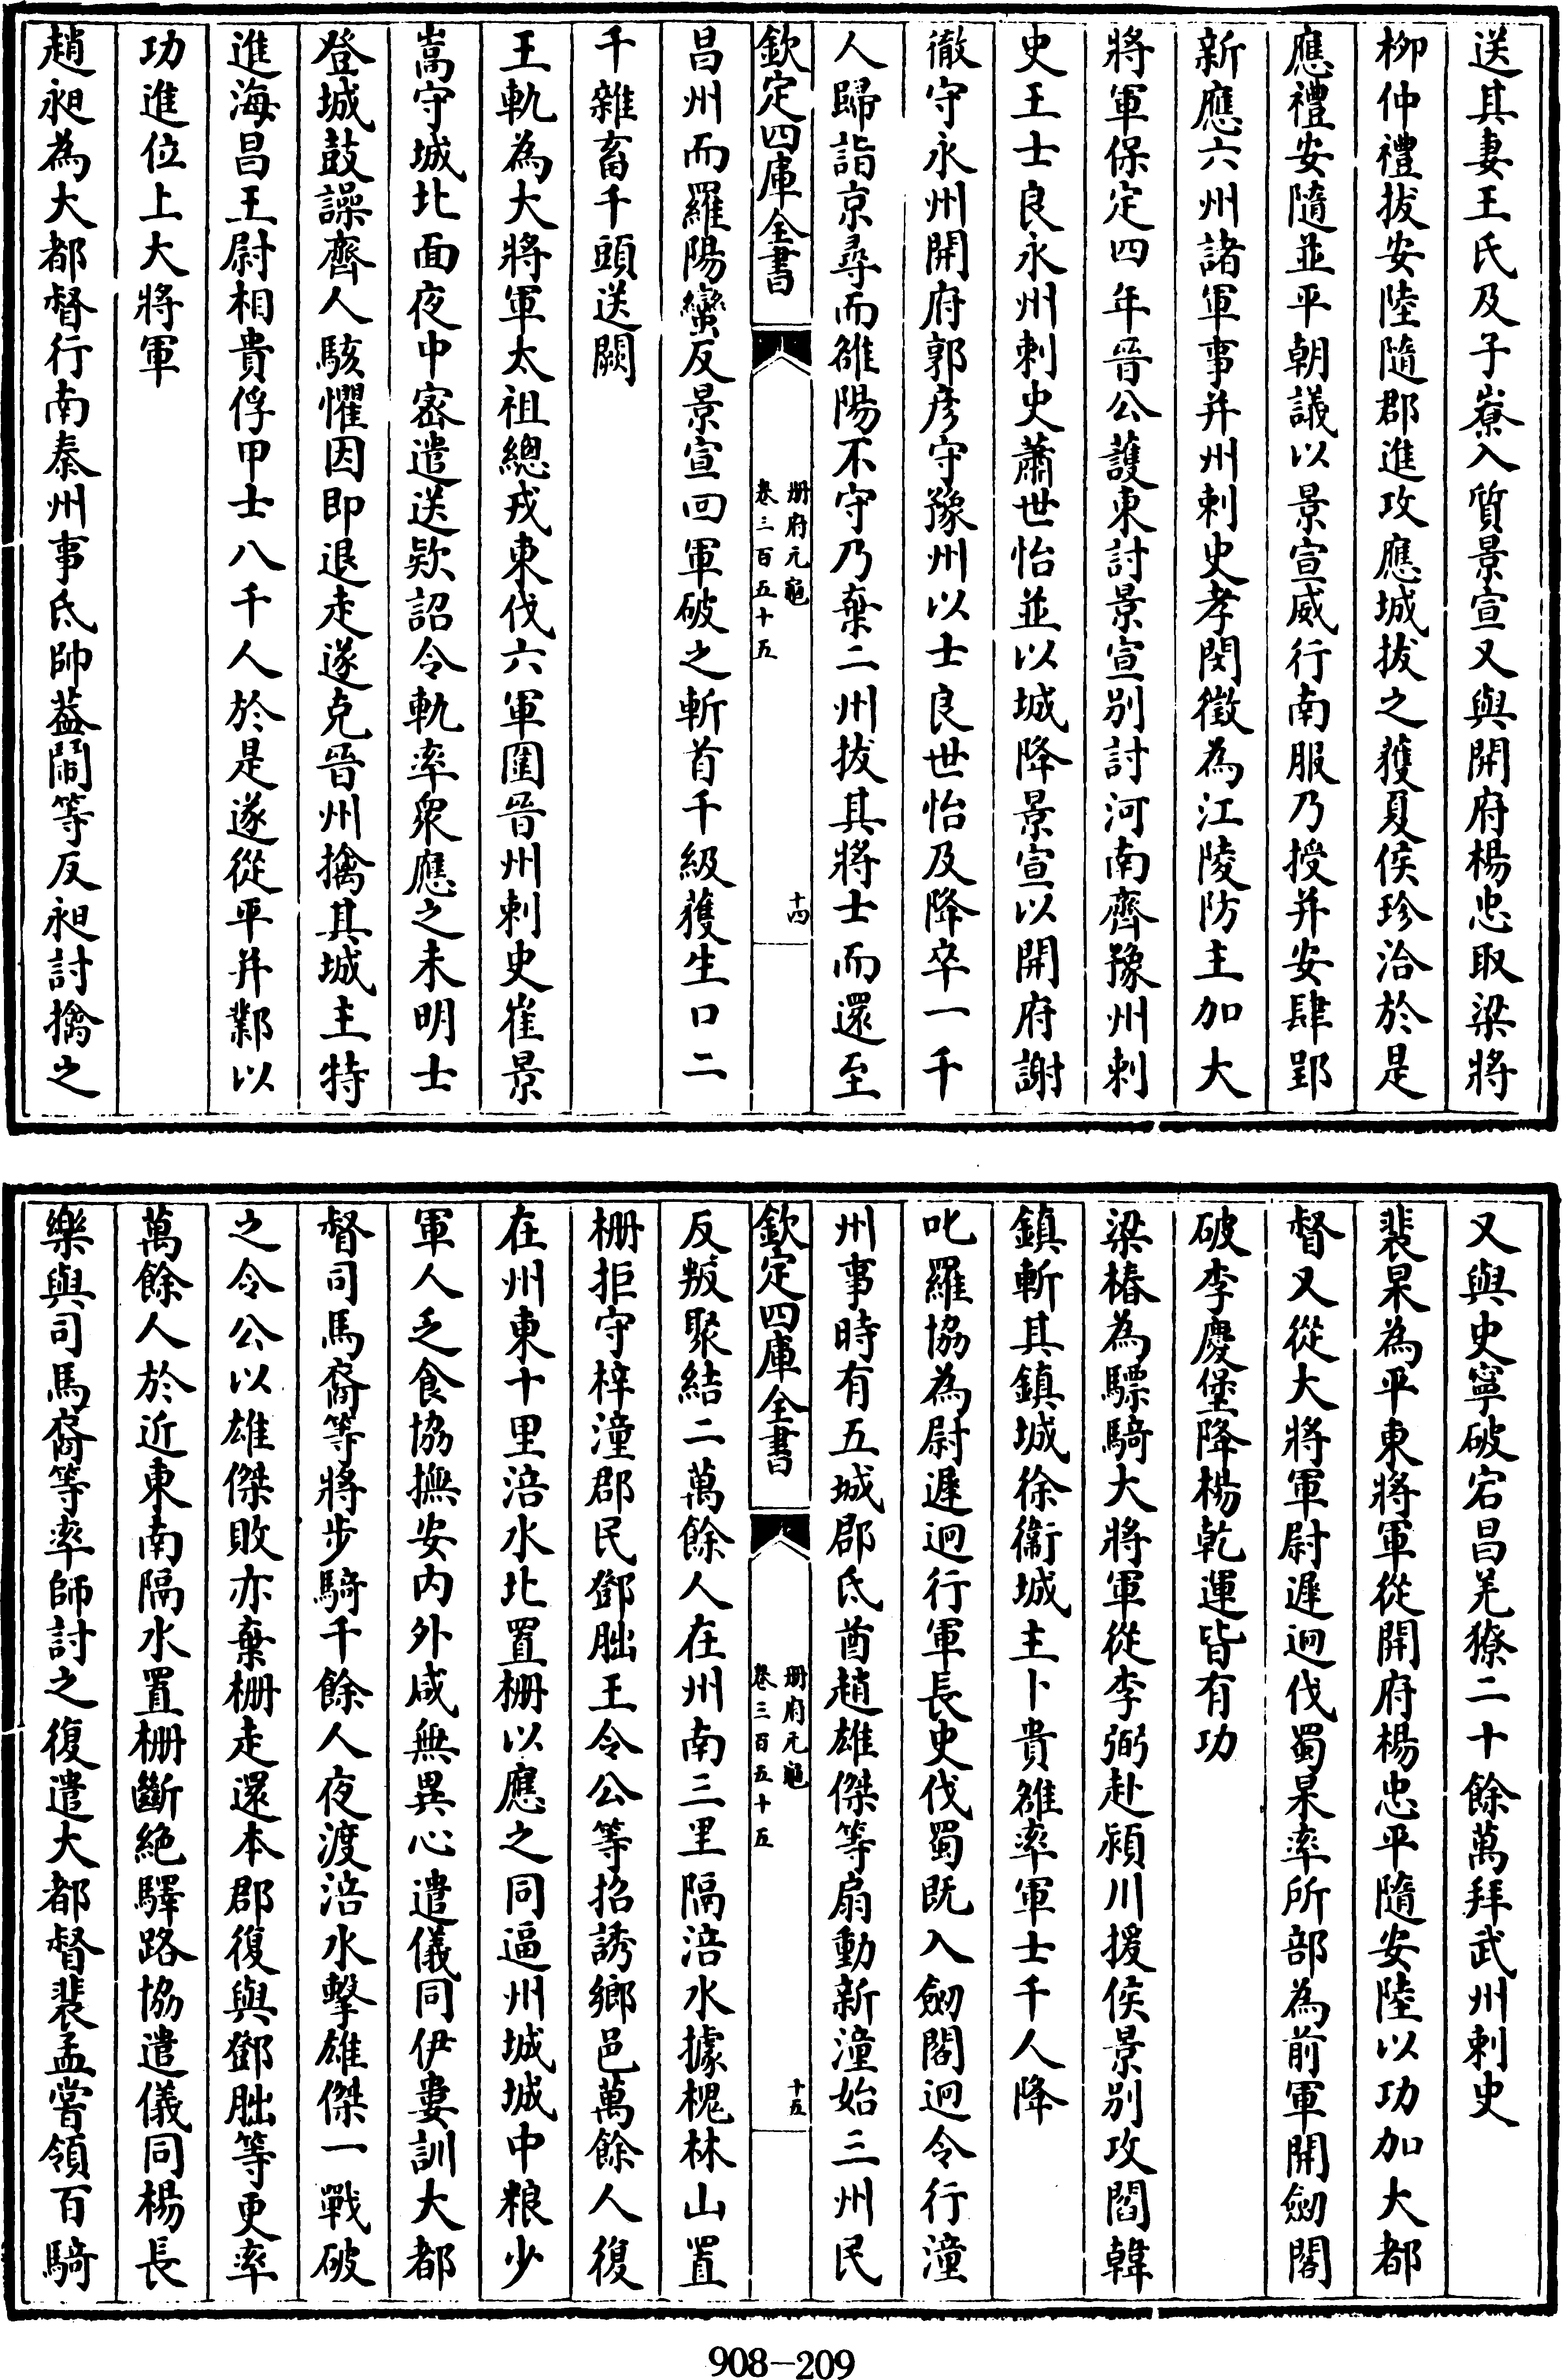 送其妻王氏及子寮入質景宣又與開府楊忠取梁將
柳仲禮拔安陸隨郡進攻應城拔之獲夏侯珍洽於是
應禮安隨並平朝議以景宣威行南服乃授并安肆郢
新應六州諸軍事并州刺史孝閔徵為江陵防主加大
將軍保定四年晉公護東討景宣别討河南齊豫州刺
史王士良永州刺史蕭世怡並以城降景宣以開府謝
徹守永州開府郭彦守豫州以士良世怡及降卒一千
人歸詣京尋而雒陽不守乃棄二州拔其將士而還至
欽定四庫全書
册府元龜
卷三百五十五
十四
昌州而羅陽蠻反景宣回軍破之斬首千級獲生口二
千雜畜千頭送闕
王軌為大將軍太祖總戎東伐六軍圍晉州刺史崔景
嵩守城北面夜中密遣送欵詔令軌率衆應之未明士
登城鼓譟齊人駭懼因即退走遂克晉州擒其城主特
進海昌王尉相貴俘甲士八千人於是遂從平并鄴以
功進位上大將軍
趙昶為大都督行南秦州事氐帥葢鬧等反昶討擒之
又與史寧破宕昌羌獠二十餘萬拜武州刺史
裴果為平東將軍從開府楊忠平隨安陸以功加大都
督又從大將軍尉遲迥伐蜀果率所部為前軍開劒閣
破李慶堡降楊乾運皆有功
梁椿為驃騎大將軍從李弼赴潁川援侯景别攻閻韓
鎮斬其鎮城徐衞城主卜貴雒率軍士千人降
叱羅協為尉遲迥行軍長史伐蜀既入劒閣迥令行潼
州事時有五城郡氐酋趙雄傑等扇動新潼始三州民
欽定四庫全書
册府元龜
卷三百五十五
十五
反叛聚結二萬餘人在州南三里隔涪水據槐林山置
栅拒守梓潼郡民鄧朏王令公等招誘鄉邑萬餘人復
在州東十里涪水北置栅以應之同逼州城城中粮少
軍人乏食協撫安内外咸無異心遣儀同伊婁訓大都
督司馬裔等將步騎千餘人夜渡涪水擊雄傑一戰破
之令公以雄傑敗亦棄栅走還本郡復與鄧朏等更率
萬餘人於近東南隔水置栅斷絶驛路協遣儀同楊長
樂與司馬裔等率師討之復遣大都督裴孟嘗領百騎
908-209